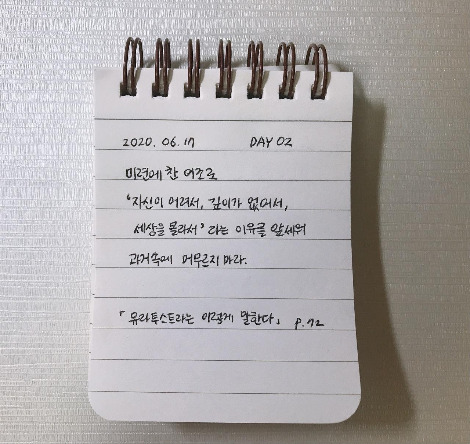 2020. 06. 17 DAY 02
미련에 찬 어조로
'자신이 어려서, 깊이가 없어서,
세상을 몰라서' 라는 이유를 앞세워
과거속에 머무르지 마라.
「유라투스트라는 이렇게 말한다」 p.72